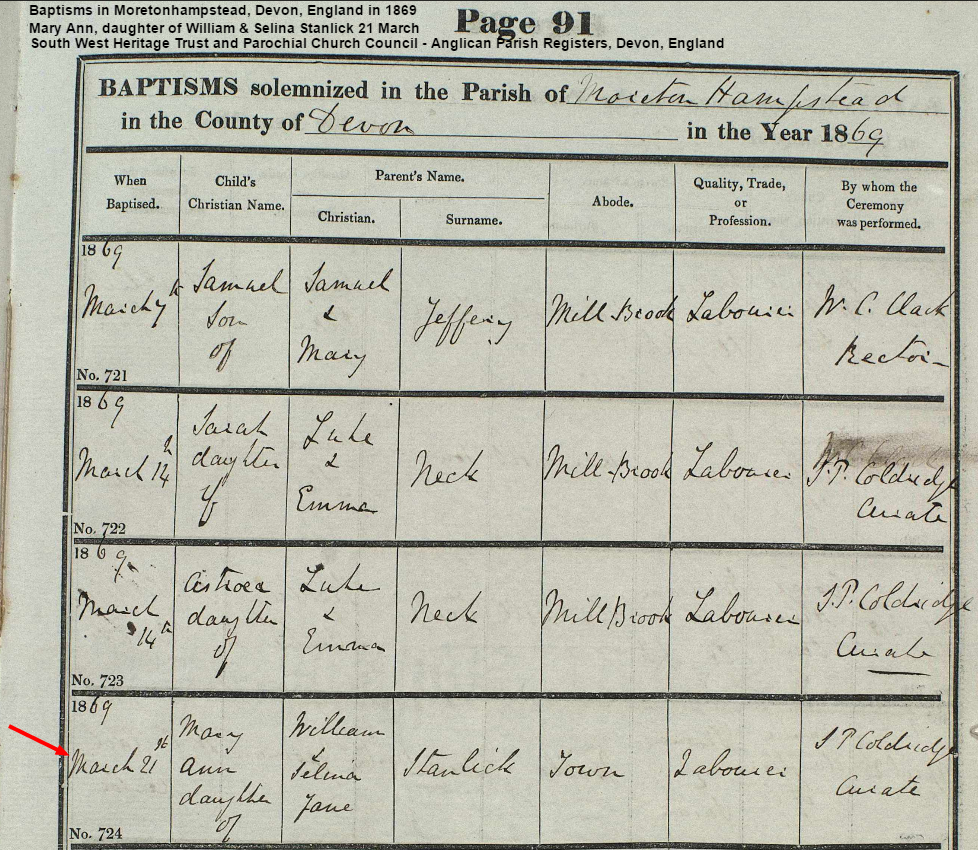 Baptisms in Moretonhampstead, Devon, England in 1869
Mary Ann, daughter of William & Selina Stanlick 21 March
South West Heritage Trust and Parochial Church Council - Anglican Parish Registers, Devon, England
Page 91
BAPTISMS solemnized in the Parish of Moreton Hampstead
in the County of Devon in the Year 1869
When Baptised.
Child's Christian Name.
Parent's Name.
Christian.
Surname.
Abode.
Quality, Trade, or Profession.
By whom the Ceremony was performed.
1869
March 7th
No. 721
Samuel
Son
of
Samuel
&
Mary
Jeffery
Mill Brook
Labourer
W. C. Clack
Rector
1869
March 14th
No. 722
Sarah
daughter
of
Luke
&
Emma
Neck
Mill-Brook
Labourer
S.P. Coldridge
Curate
1869
March
14th
No. 723
Astroea
daughter
of
Luke
&
Emma
Neck
Mill Brook
Labourer
S.P. Coldridge
Curate
1869
March 21st
No. 724
Mary
Ann
daughter
of
William
Selina
Jane
Stanlick
Town
Labourer
S P Coldridge
Curate